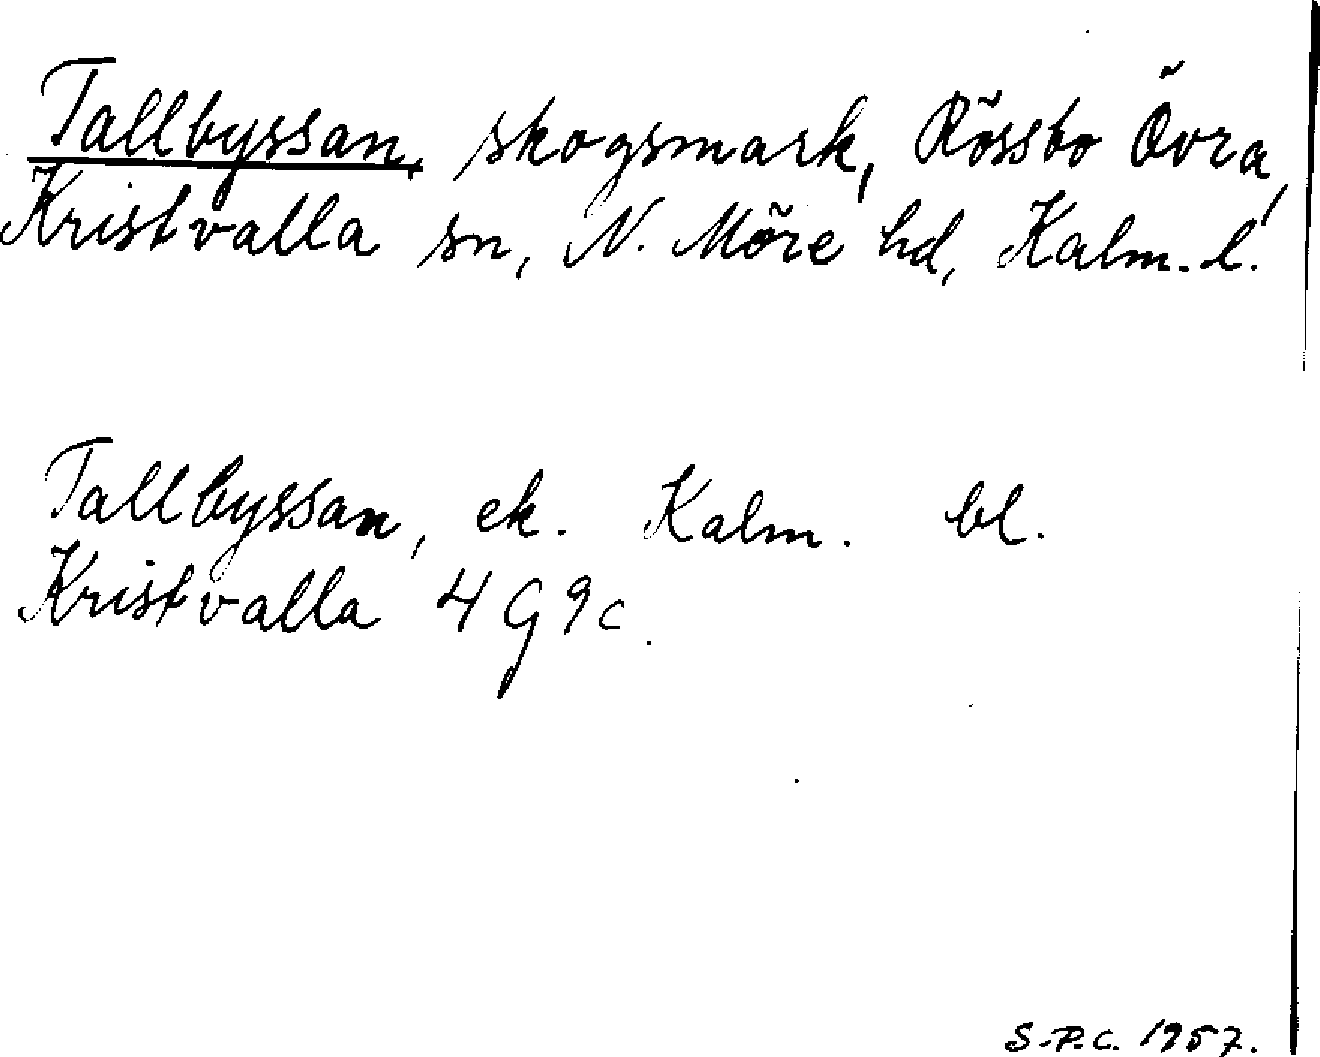 Tallbyssan, skogsmark, Rössbo Övra,
Kristvalla sn, N. Möre hd, Kalm. l.
Tallbyssan, ek. Kalm. bl.
Kristvalla 4 G 9c.
S.P.C. 1957.